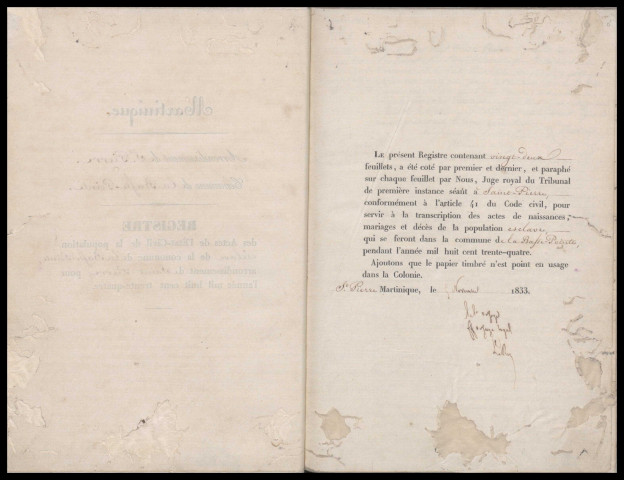 Martinique.
Arrondissement de St Pierre
Commune de la Basse Pointe
REGISTRE
des Actes de l'Etat-Civil de la population
esclave de la commune de la Basse Pointe
arrondissement de St Pierre pour
l'année mil huit cent trente-quatre.
LE présent Registre contenant vingt-deux
feuillets, a été coté par premier et dernier, et paraphé
sur chaque feuillet par Nous, Juge royal du Tribunal
de première instance séant à Saint-Pierre,
conformément à l'article 41 du Code civil, pour
servir à la transcription des actes de naissances,
mariages et décès de la population esclave,
qui se feront dans la commune de la Basse-Pointe,
pendant l'année mil huit cent trente-quatre.
Ajoutons que le papier timbré n'est point en usage
dans la Colonie.
St Pierre Martinique, le 1833.